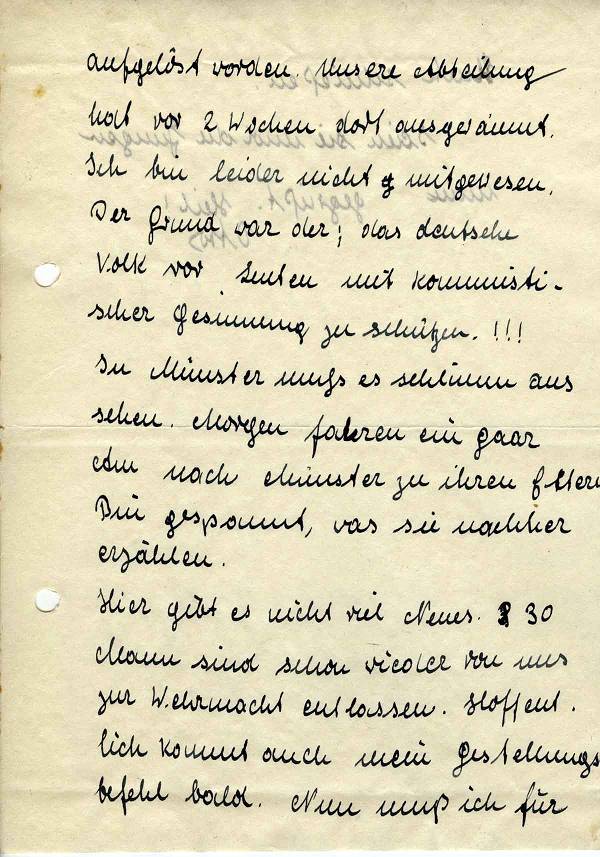 aufgelöst worden. Unsere Abteilung
hat vor 2 Wochen dort ausgeräumt.
Ich bin leider nicht mitgewesen.
Der Grund war der; das deutsche
Volk vor Leuten mit kommunisti-
scher Gesinnung zu schützen. !!!
In Münster muß es schlimm aus
sehen. Morgen fahren ein paar
Am nach Münster zu ihren Eltern
Bin gespannt, was sie nachher
erzählen.
Hier gibt es nicht viel Neues. 30
Mann sind schon wieder von uns
zur Wehrmacht entlassen. Hoffent.
lich kommt auch mein Gestellungs
befehl bald. Nun muß ich für